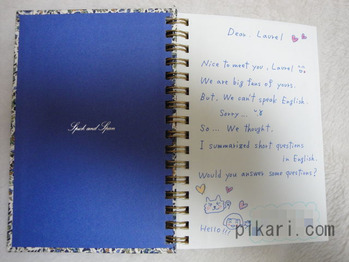 Spick and Span
Dear. Laurel
Nice to meet you, Laurel
We are big fans of yours.
But, We can't speak English.
Sorry....
So... We thought.
I summarized short questions
in English.
Would you answer some questions?
Hello!!!
pikari.com